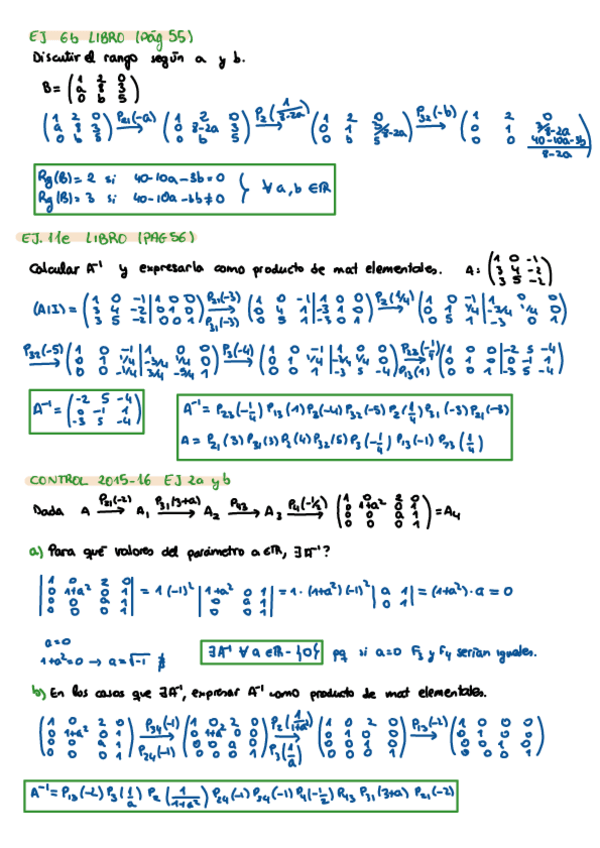 EJ 6b LIBRO (Pág 55)
Discutir el rango según a y b.
B = (1 2 0 / a 8 3 / 0 b 5)
(1 2 0 / a 8 3 / 0 b 5) P21(-a) → (1 2 0 / 0 8-2a 3 / 0 b 5) P2(1/8-2a) → (1 2 0 / 0 1 3/8-2a / 0 b 5) P32(-b) → (1 2 0 / 0 1 3/8-2a / 0 0 40-10a-3b/8-2a)
Rg(B)=2 si 40-10a-3b=0
Rg(B)=3 si 40-10a-3b≠0 } ∀a,b∈ℝ
EJ. 11e LIBRO (PAG 56)
Calcular A⁻¹ y expresarla como producto de mat elementales. A: (1 0 -1 / 3 4 -2 / 3 5 -2)
(A|I) = (1 0 -1 | 1 0 0 / 3 4 -2 | 0 1 0 / 3 5 -2 | 0 0 1) P21(-3) P31(-3) → (1 0 -1 | 1 0 0 / 0 4 1 | -3 1 0 / 0 5 1 | -3 0 1) P2(1/4) → (1 0 -1 | 1 0 0 / 0 1 1/4 | -3/4 1/4 0 / 0 5 1 | -3 0 1)
P32(-5) → (1 0 -1 | 1 0 0 / 0 1 1/4 | -3/4 1/4 0 / 0 0 -1/4 | 3/4 -5/4 1) P3(-4) → (1 0 -1 | 1 0 0 / 0 1 1/4 | -3/4 1/4 0 / 0 0 1 | -3 5 -4) P23(-1/4) P13(1) → (1 0 0 | -2 5 -4 / 0 1 0 | 0 -1 1 / 0 0 1 | -3 5 -4)
A⁻¹ = (-2 5 -4 / 0 -1 1 / -3 5 -4)
A⁻¹ = P23(-1/4) P13(1) P3(-4) P32(-5) P2(1/4) P31(-3) P21(-3)
A = P21(3) P31(3) P2(4) P32(5) P3(-1/4) P13(-1) P23(1/4)
CONTROL 2015-16 EJ 2a y b
Dada A P21(-2) → A1 P31(3+a) → A2 P43 → A3 P4(-1/2) → (1 0 2 0 / 0 1+a² 0 1 / 0 0 a 1 / 0 0 0 1) = A4
a) Para qué valores del parámetro a∈ℝ, ∃A⁻¹?
|1 0 2 0 / 0 1+a² 0 1 / 0 0 a 1 / 0 0 0 1| = 1(-1)² |1+a² 0 1 / 0 a 1 / 0 0 1| = 1·(1+a²)(-1)² |a 1 / 0 1| = (1+a²)·a = 0
a=0
1+a²=0 → a=√-1 ∄
∃A⁻¹ ∀a∈ℝ-{0} pq si a=0 F3 y F4 serían iguales.
b) En los casos que ∃A⁻¹, expresar A⁻¹ como producto de mat elementales.
(1 0 2 0 / 0 1+a² 0 1 / 0 0 a 1 / 0 0 0 1) P34(-1) P24(-1) → (1 0 2 0 / 0 1+a² 0 0 / 0 0 a 0 / 0 0 0 1) P2(1/1+a²) P3(1/a) → (1 0 2 0 / 0 1 0 0 / 0 0 1 0 / 0 0 0 1) P13(-2) → (1 0 0 0 / 0 1 0 0 / 0 0 1 0 / 0 0 0 1)
A⁻¹ = P13(-2) P3(1/a) P2(1/1+a²) P24(-1) P34(-1) P4(-1/2) P43 P31(3+a) P21(-2)